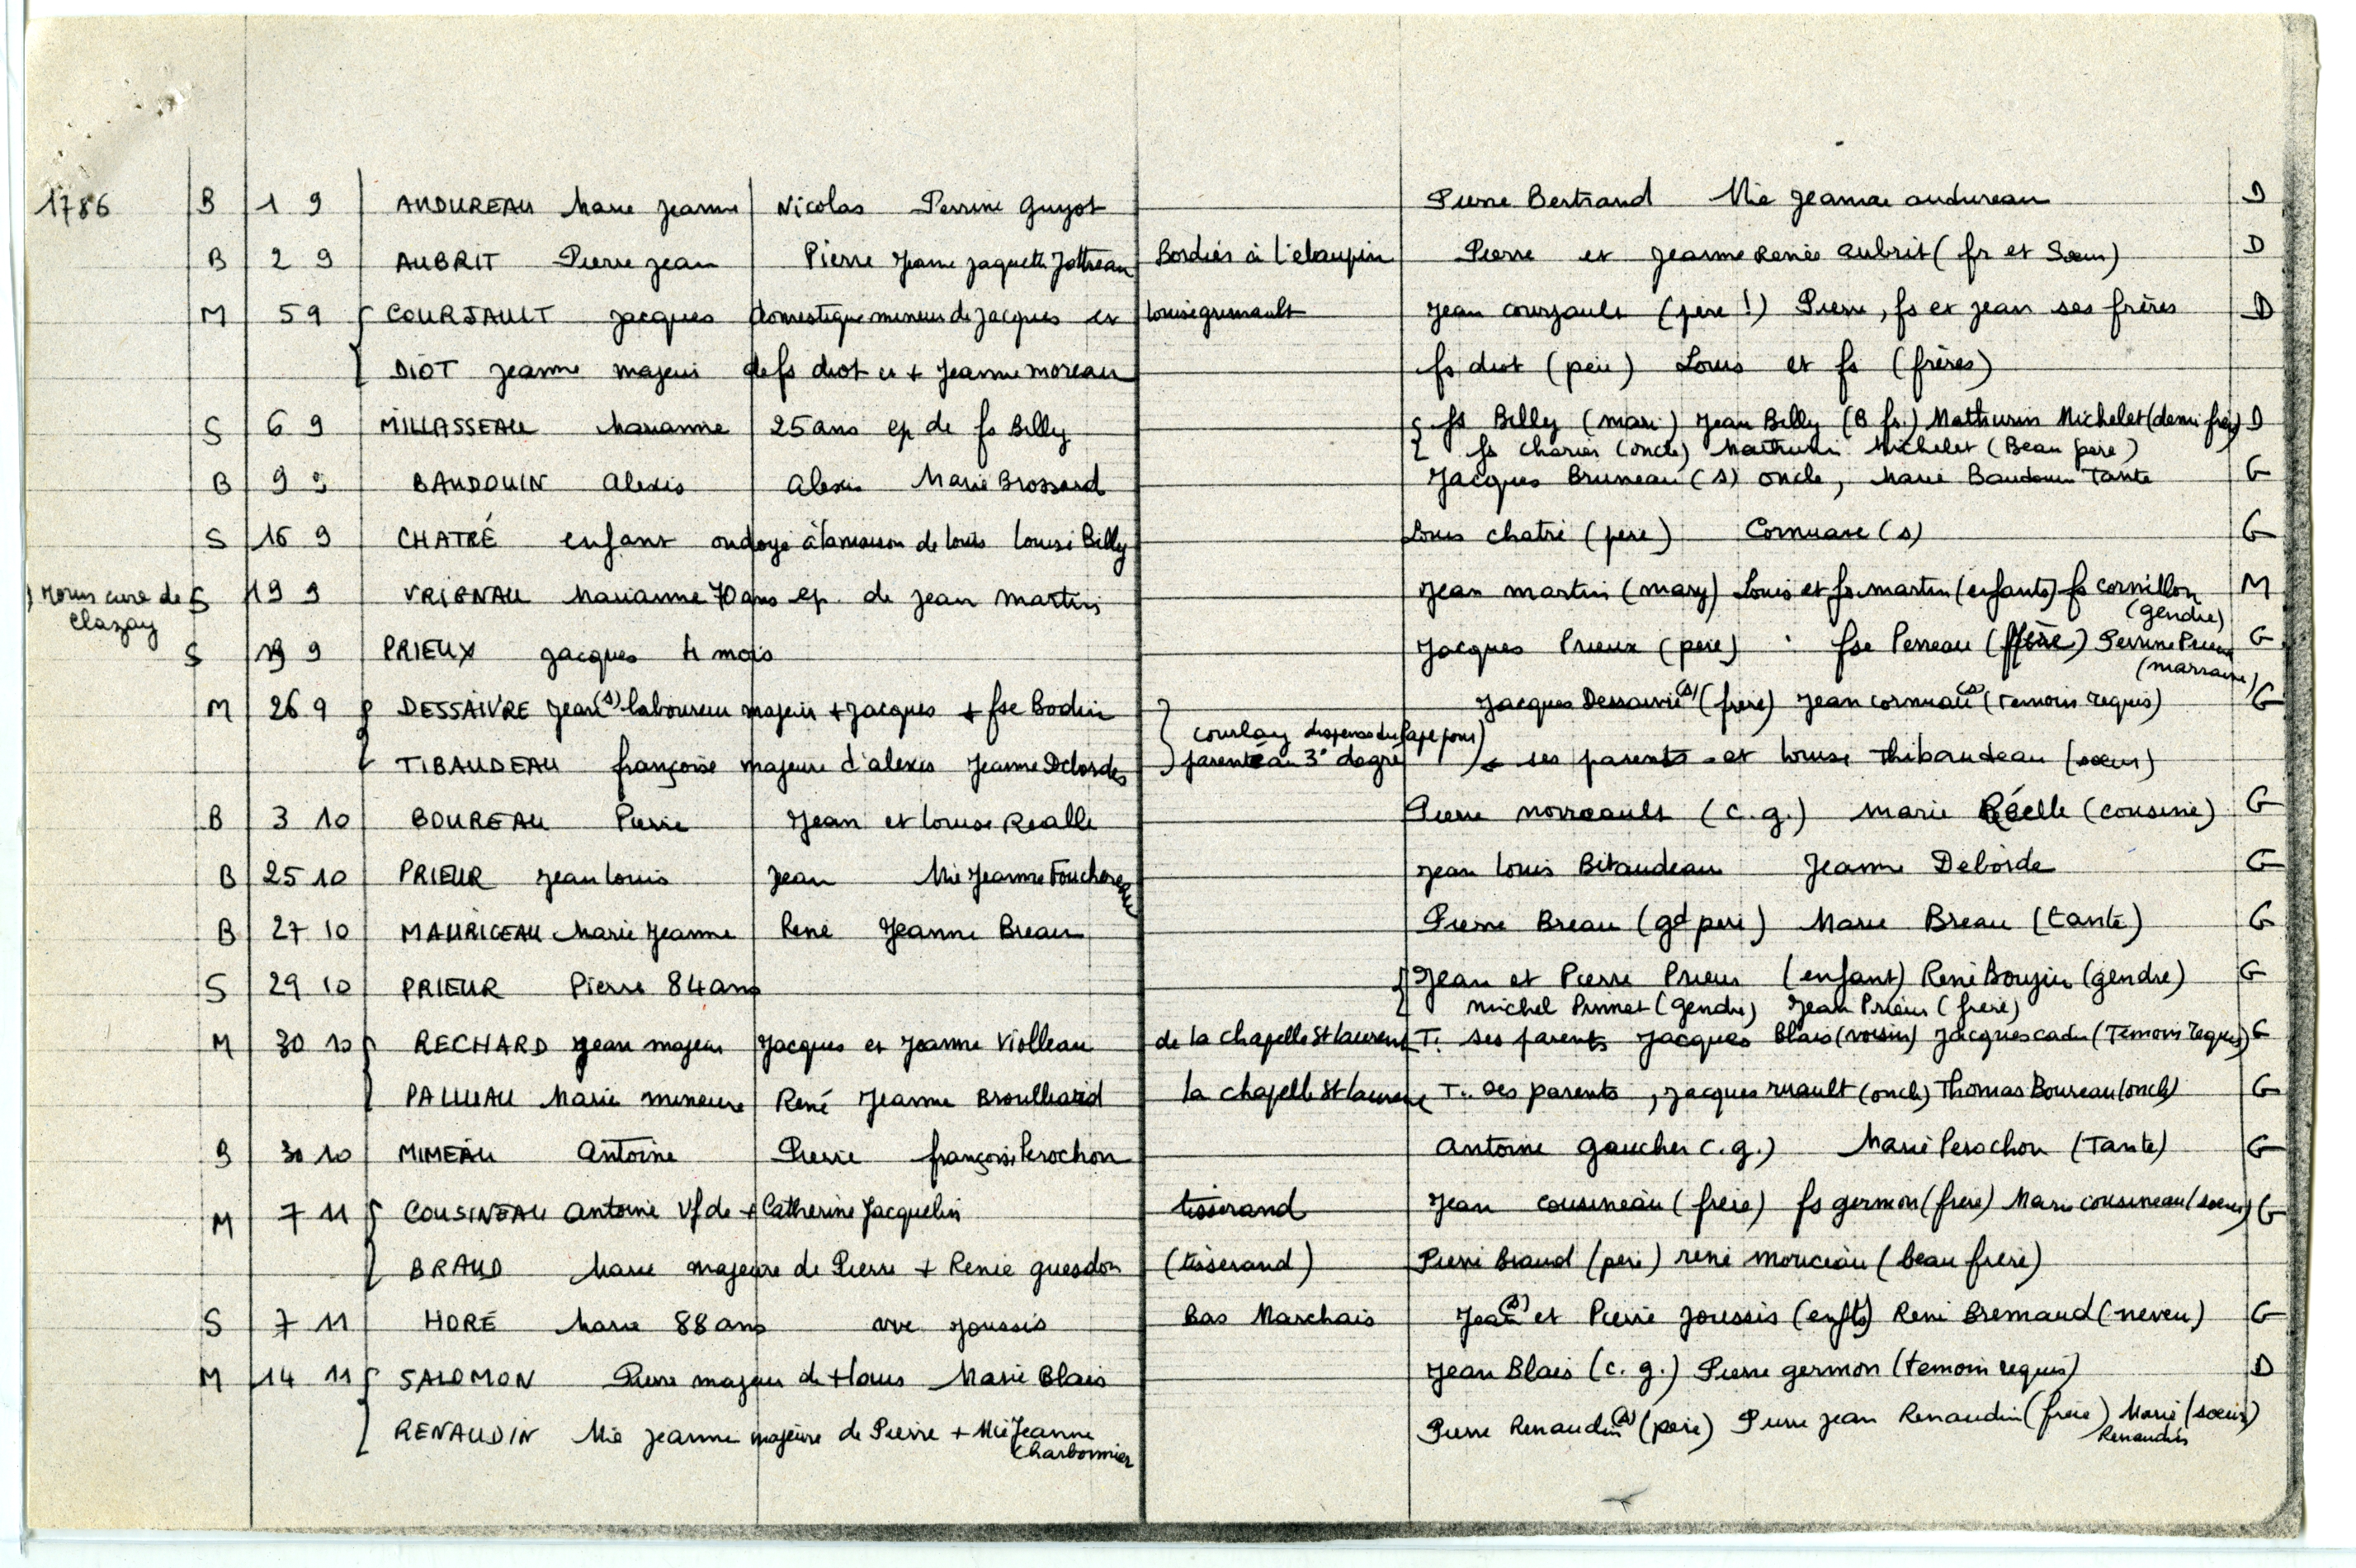 1786 B 1 9 AUDUREAU Marie Jeanne Nicolas Perrine Guyot Pierre Bertrand Mie Jeanne audureau D
B 2 9 AUBRIT Pierre Jean Pierre Jeanne Jaquette Jottreau Bordier à l'elaupin Pierre et Jeanne Renée Aubrit (fr et Sœur) D
M 5 9 COURJAULT Jacques domestique mineur de Jacques et Louise grimault Jean courjault (père !) Pierre, fs et Jean ses frères D
DIOT Jeanne majeur de fs diot et + Jeanne moreau fs diot (père) Louis et fs (frères)
S 6 9 MILLASSEAU Marianne 25 ans ep de fs Billy fs Billy (mari) Jean Billy (B fr.) Mathurin Michelet (demi frère) D
fs Charier (oncle) Mathurin Michelet (Beau père)
B 9 9 BAUDOUIN Alexis Alexis Marie Brossard Jacques Bruneau (s) oncle, Marie Baudouin Tante G
S 16 9 CHATRÉ enfant ondoyé à la maison de Louis Louise Billy Louis chatré (père) Cornuau (s) G
Morin curé de Clazay S 19 9 VRIGNAU Marianne 70 ans ep. de Jean Martin Jean martin (mary) Louis et fs martin (enfants) fs cornillon (gendre) M
S 19 9 PRIEUX Jacques 4 mois Jacques Prieux (père) fse Perreau Perrine Prieux (marraine) G
M 26 9 DESSAIVRE Jean (s) laboureur majeur + Jacques + fse Bodin Jacques Dessaivre (s) (frère) Jean cornuau (s) (temoin requis) G
courlay dispense du Pape pour
TIBAUDEAU françoise majeure d'alexis Jeanne Delordes parenté au 3° degré ses parents et Louise Thibaudeau (sœur)
B 3 10 BOUREAU Pierre Jean et Louise Realle Pierre norreault (c. g.) Marie Réelle (cousine) G
B 25 10 PRIEUR Jean Louis Jean Mie Jeanne Fouchereau Jean Louis Bitaudeau Jeanne Deborde G
B 27 10 MAURICEAU Marie Jeanne René Jeanne Breau Pierre Breau (gd père) Marie Breau (tante) G
S 29 10 PRIEUR Pierre 84 ans Jean et Pierre Prieur (enfant) René Boujin (gendre) G
Michel Prunet (gendre) Jean Prieur (frère)
M 30 10 RECHARD Jean majeur Jacques et Jeanne Violleau de la chapelle St laurent T. ses parents Jacques Blais (voisin) Jacques cadu (Temoin requis) G
PALLUAU Marie mineure René Jeanne Broulliard la chapelle St laurent T. ses parents, Jacques ruault (oncle) Thomas Boureau (oncle) G
B 30 10 MIMEAU Antoine Pierre françoise Perochon Antoine Gaucher c. g.) Marie Perochon (Tante) G
M 7 11 COUSINEAU Antoine Vf de + Catherine Jacquelin tisserand Jean cousineau (frère) fs germon (frère) Marie cousineau (sœur) G
BRAUD Marie majeure de Pierre + Renée guesdon (tisserand) Pierre Braud (père) rené mouceau (beau frère)
S 7 11 HORÉ Marie 88 ans vve Joussis Bas Marchais Jean (s) et Pierre Joussis (enfts) René Bremaud (neveu) G
M 14 11 SALOMON Pierre majeur de + Louis Marie Blais Jean Blais (c. g.) Pierre germon (temoin requis) D
RENAUDIN Mie Jeanne majeure de Pierre + Mie Jeanne Charbonnier Pierre Renaudin (s) (père) Pierre Jean Renaudin (frère) Marie Renaudin (sœur)